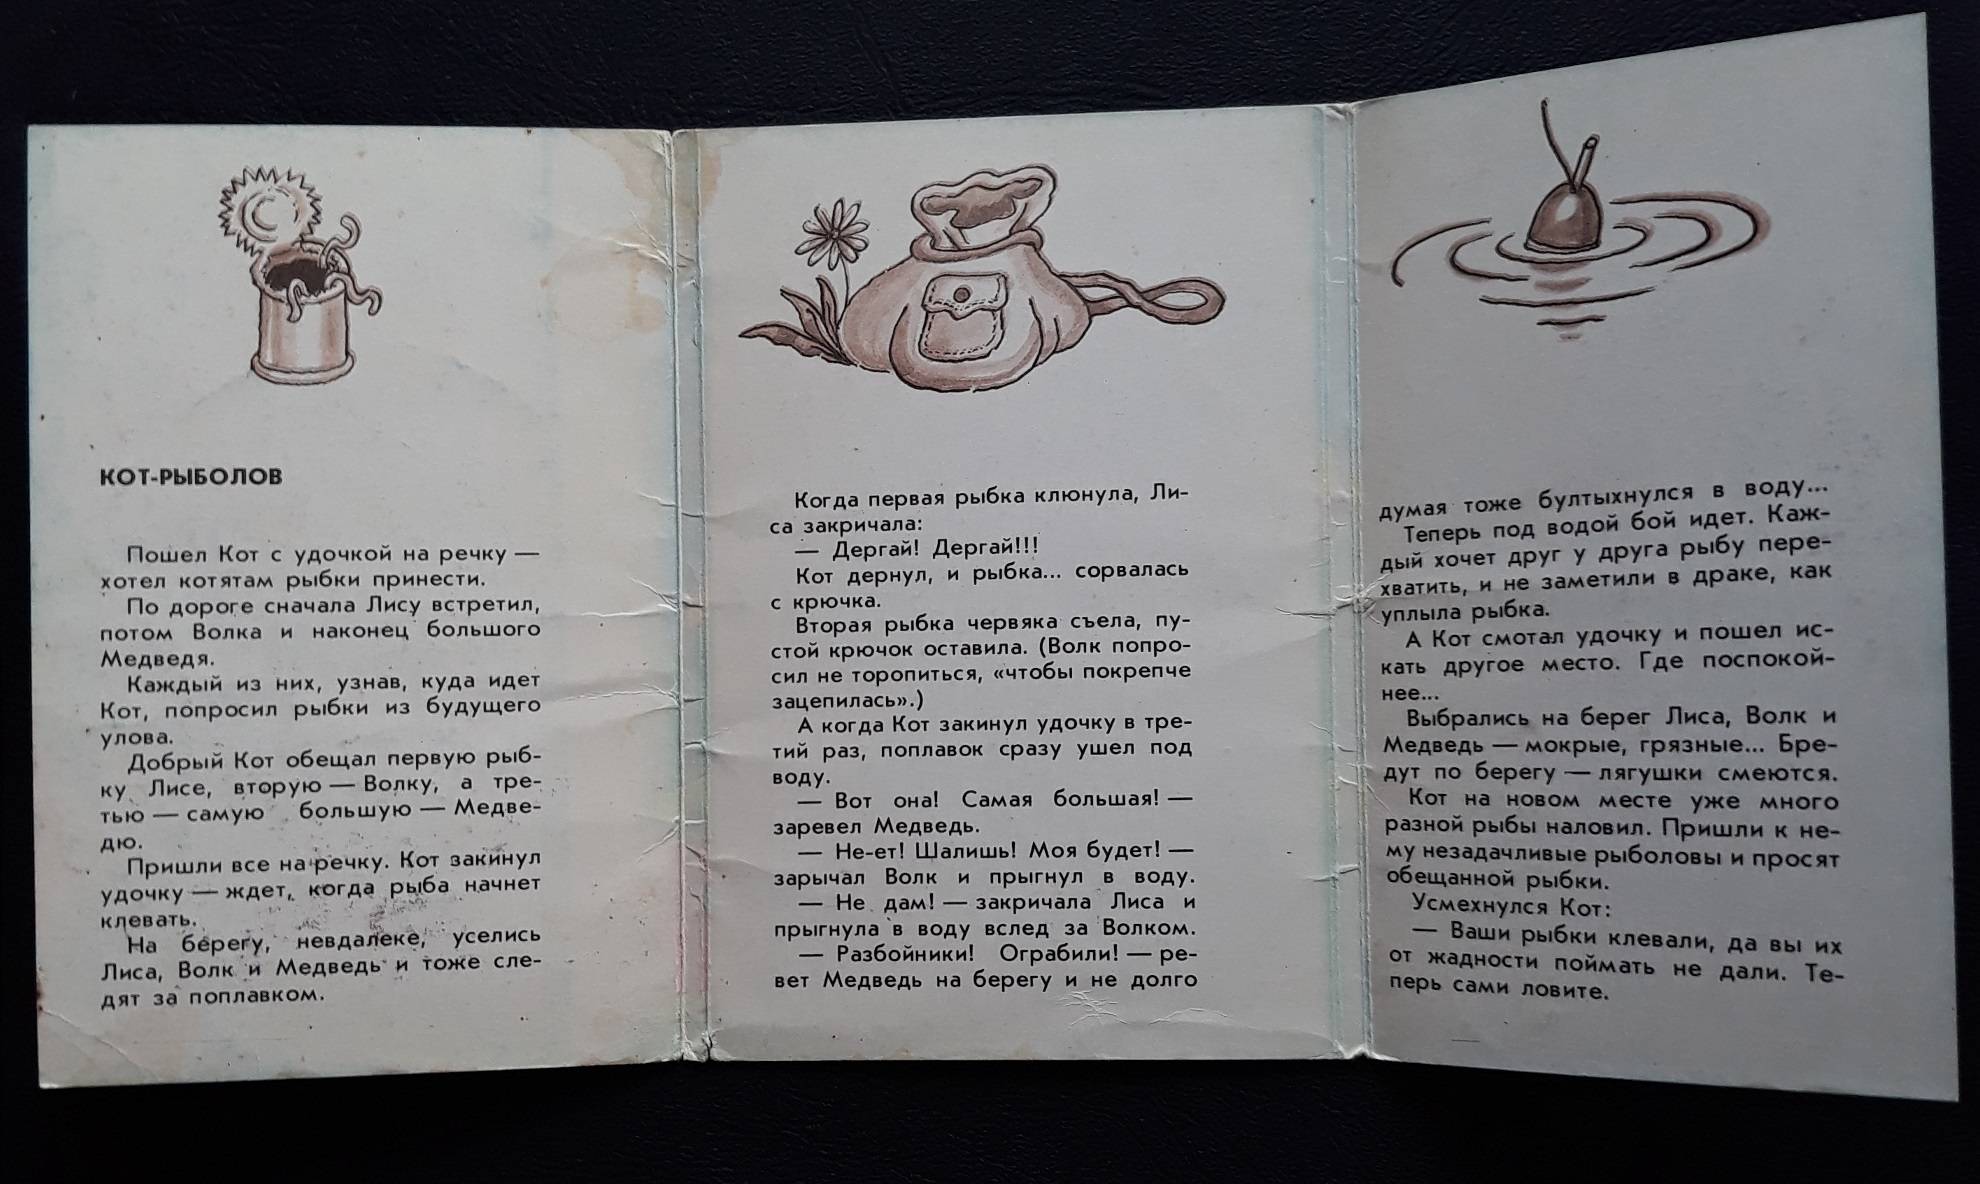 КОТ-РЫБОЛОВ
Пошел Кот с удочкой на речку —
хотел котятам рыбки принести.
По дороге сначала Лису встретил,
потом Волка и наконец большого
Медведя.
Каждый из них, узнав, куда идет
Кот, попросил рыбки из будущего
улова.
Добрый Кот обещал первую рыб-
ку Лисе, вторую — Волку, а тре-
тью — самую большую — Медве-
дю.
Пришли все на речку. Кот закинул
удочку — ждет, когда рыба начнет
клевать.
На берегу, невдалеке, уселись
Лиса, Волк и Медведь и тоже сле-
дят за поплавком.
Когда первая рыбка клюнула, Ли-
са закричала:
— Дергай! Дергай!!!
Кот дернул, и рыбка... сорвалась
с крючка.
Вторая рыбка червяка съела, пу-
стой крючок оставила. (Волк попро-
сил не торопиться, «чтобы покрепче
зацепилась».)
А когда Кот закинул удочку в тре-
тий раз, поплавок сразу ушел под
воду.
— Вот она! Самая большая! —
заревел Медведь.
— Не-ет! Шалишь! Моя будет! —
зарычал Волк и прыгнул в воду.
— Не дам! — закричала Лиса и
прыгнула в воду вслед за Волком.
— Разбойники! Ограбили! — ре-
вет Медведь на берегу и не долго
думая тоже бултыхнулся в воду...
Теперь под водой бой идет. Каж-
дый хочет друг у друга рыбу пере-
хватить, и не заметили в драке, как
уплыла рыбка.
А Кот смотал удочку и пошел ис-
кать другое место. Где поспокой-
нее...
Выбрались на берег Лиса, Волк и
Медведь — мокрые, грязные... Бре-
дут по берегу — лягушки смеются.
Кот на новом месте уже много
разной рыбы наловил. Пришли к не-
му незадачливые рыболовы и просят
обещанной рыбки.
Усмехнулся Кот:
— Ваши рыбки клевали, да вы их
от жадности поймать не дали. Те-
перь сами ловите.